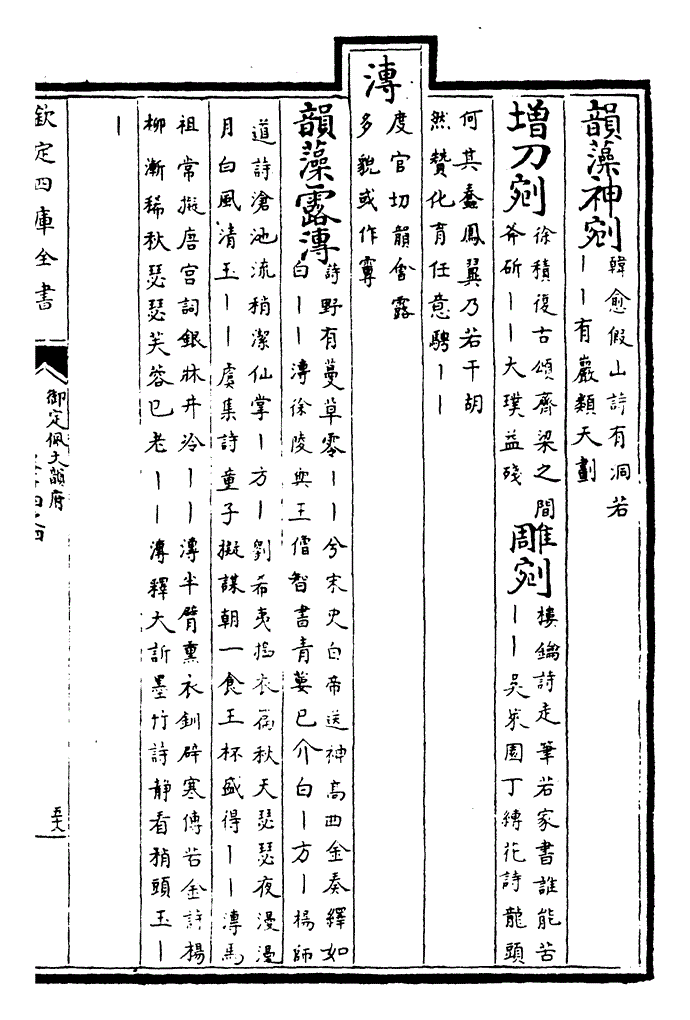 韻藻神剜
韓愈假山詩有洞若
丨丨有巖類天劃
增刀剜
徐積復古頌齊梁之間
斧斫丨丨大璞益殘
雕剜
樓鑰詩走筆若家書誰能苦
丨丨吳萊園丁縛花詩龍頭
何其蠢鳳翼乃若干胡
然贊化育任意騁丨丨
漙
度官切韻會露
多貌或作
韻藻露漙
詩野有蔓草零丨丨兮宋史白帝送神高西金奏繹如
白丨丨漙徐陵與王僧智書青蔞已介白丨方丨楊師
道詩滄池流稍潔仙掌丨方丨劉希夷搗衣篇秋天瑟瑟夜漫漫
月白風清玉丨丨虞集詩童子擬謀朝一食玉杯盛得丨丨漙馬
祖常擬唐宫詞銀牀井冷丨丨漙半臂熏衣釧辟寒傅若金詩楊
柳漸稀秋瑟瑟芙蓉已老丨丨漙釋大訢墨竹詩静看稍頭玉丨
丨
欽定四庫全書
御定佩文韻府